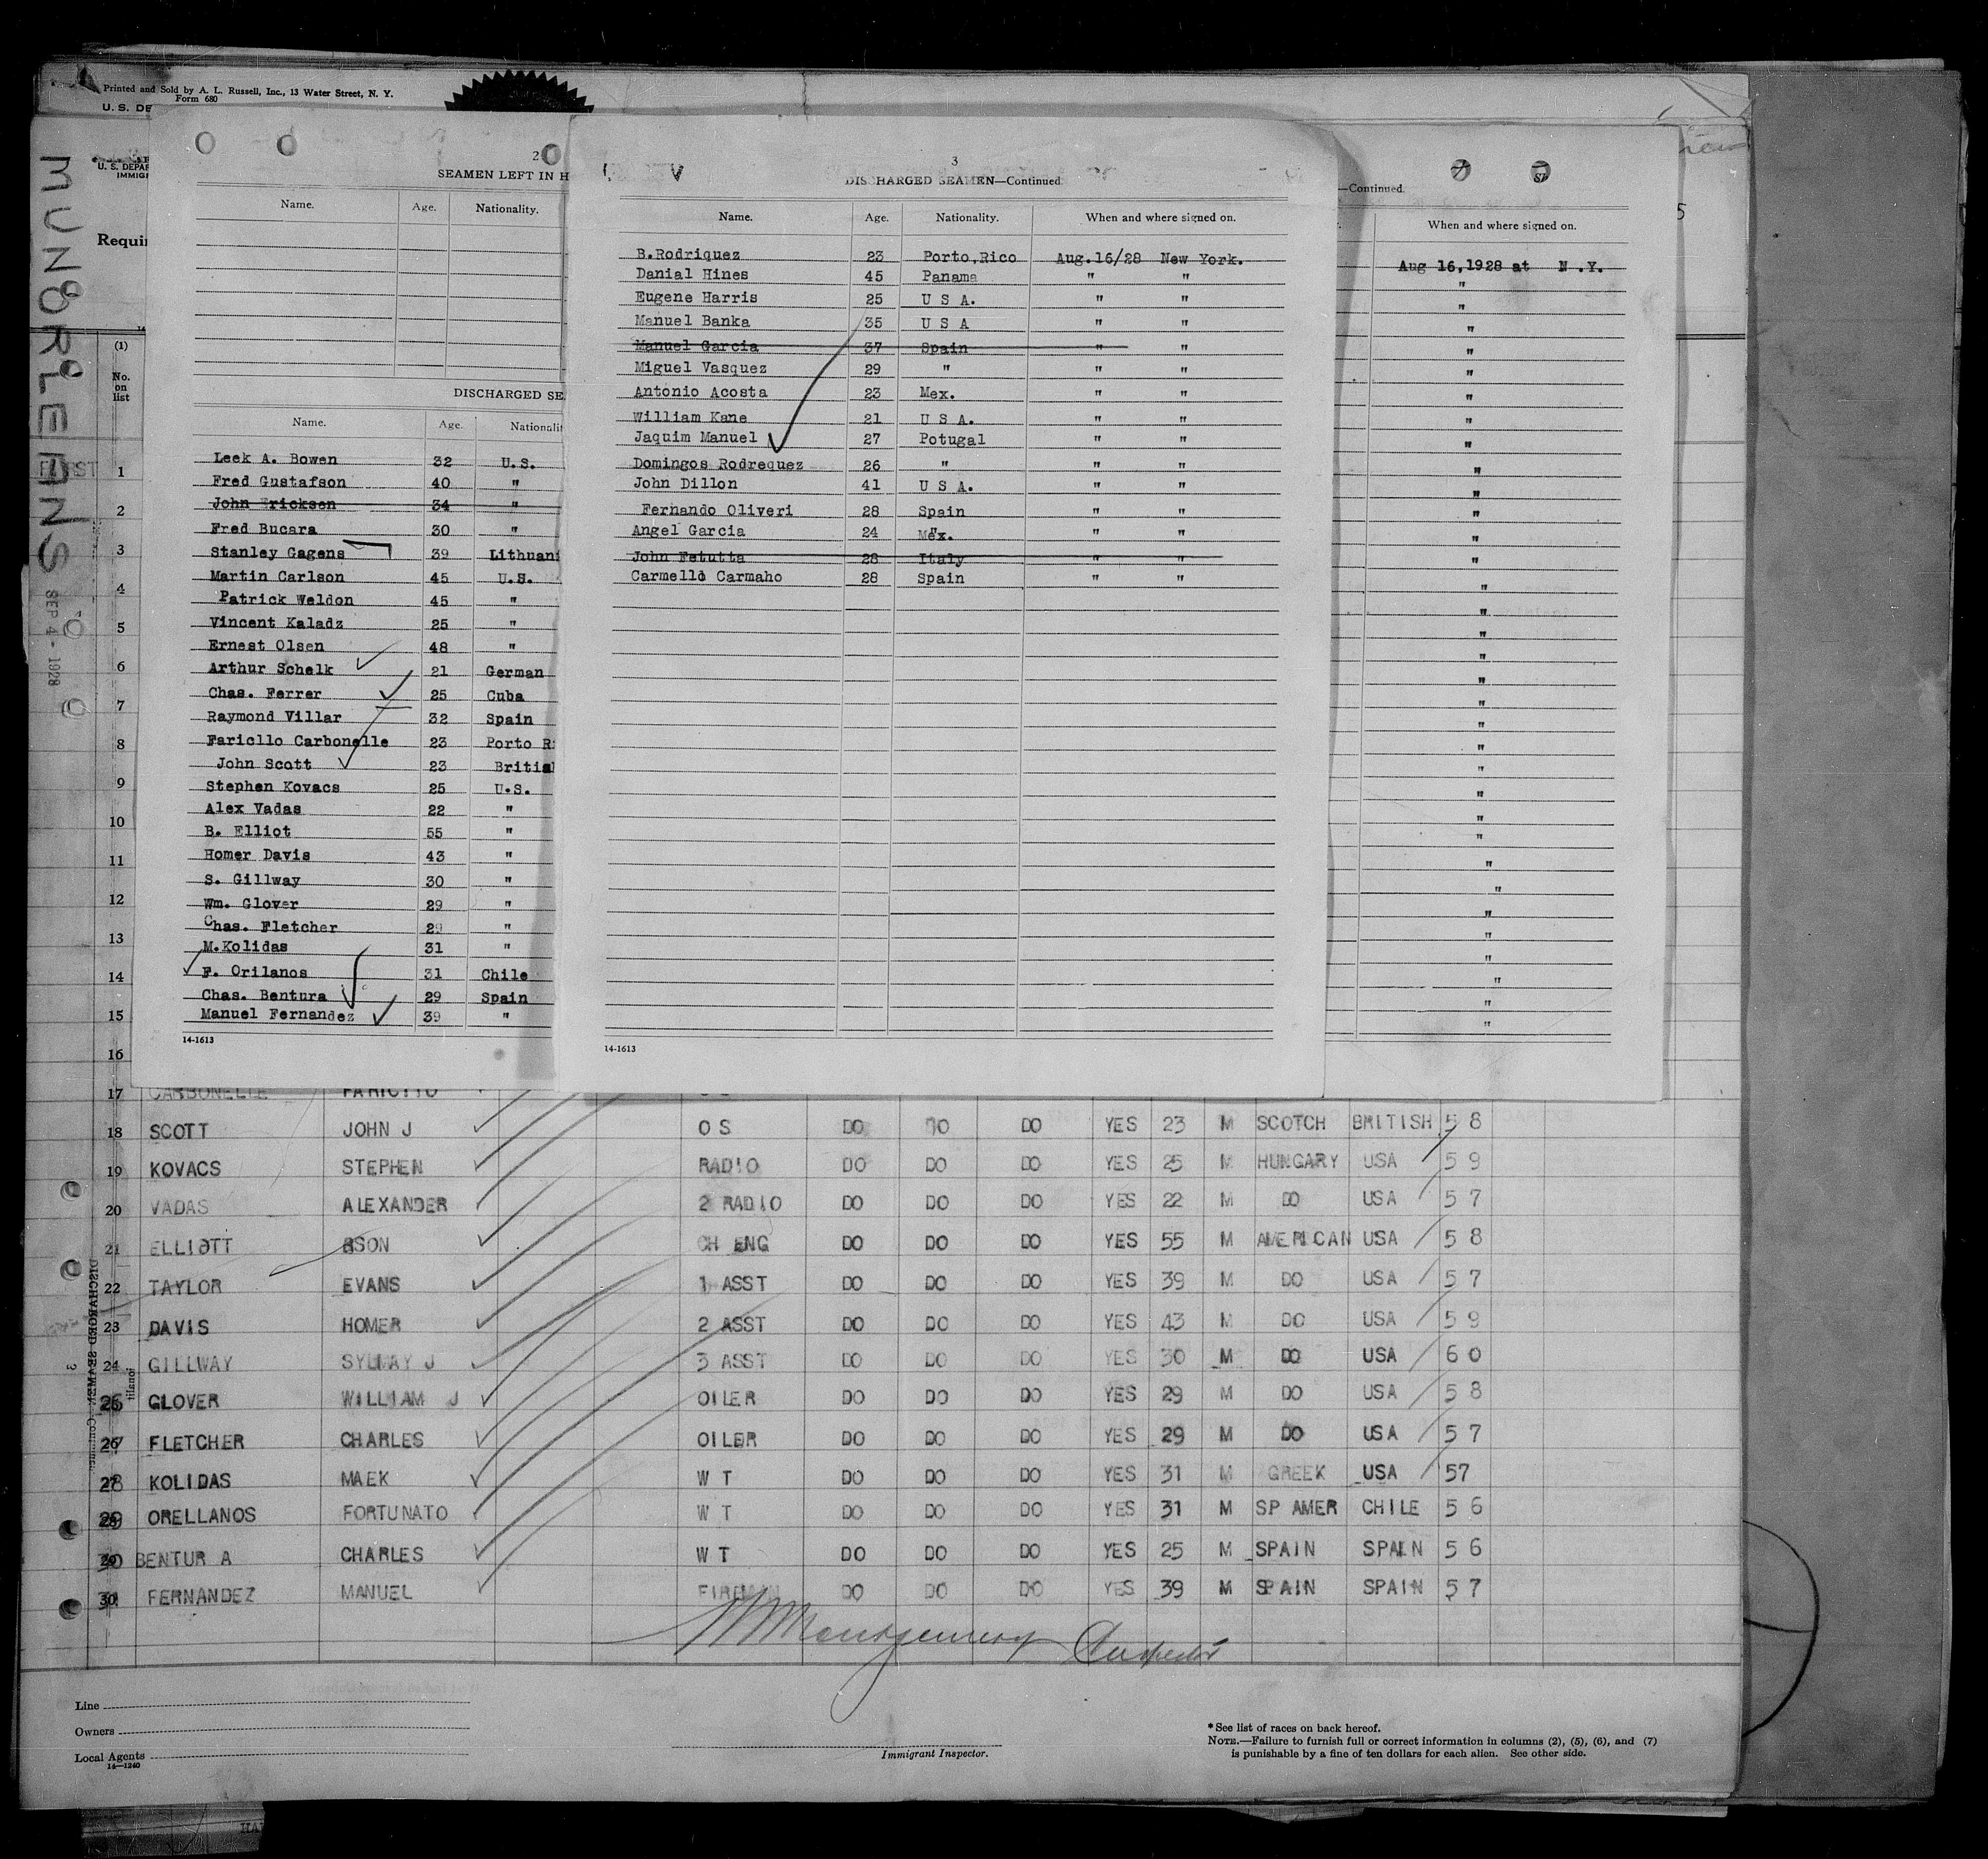 Printed and Sold by A. L. Russell, Inc., 13 Water Street, N. Y.
Form 680
U. S. DE
U. S. DEPAR
IMMIG
Requi
MUNORLEANS
SEP 4 - 1928
(1)
No. on list
FIRST
2
SEAMEN LEFT IN H
Name. Age. Nationality.
DISCHARGED SE
Name. Age. Nationalit
Leek A. Bowen 32 U.S.
Fred Gustafson 40 "
John Erickson 34 "
Fred Bucara 30 "
Stanley Gagens 39 Lithuani
Martin Carlson 45 U.S.
Patrick Weldon 45 "
Vincent Kaladz 25 "
Ernest Olsen 48 "
Arthur Schelk 21 German
Chas. Ferrer 25 Cuba
Raymond Villar 32 Spain
Faricllo Carbonelle 23 Porto Ri
John Scott 23 British
Stephen Kovacs 25 U.S.
Alex Vadas 22 "
B. Elliot 55 "
Homer Davis 43 "
S. Gillway 30 "
Wm. Glover 29 "
Chas. Fletcher 29 "
M.Kolidas 31 "
F. Orilanos 31 Chile
Chas. Bentura 29 Spain
Manuel Fernandez 39 "
14-1613
3
DISCHARGED SEAMEN—Continued
Name. Age. Nationality. When and where signed on.
B.Rodriquez 23 Porto,Rico Aug.16/28 New York.
Danial Hines 45 Panama " "
Eugene Harris 25 U S A. " "
Manuel Banka 35 U S A " "
Manuel Garcia 37 Spain " "
Miguel Vasquez 29 " " "
Antonio Acosta 23 Mex. " "
William Kane 21 U S A. " "
Jaquim Manuel 27 Potugal " "
Domingos Rodrequez 26 " " "
John Dillon 41 U S A. " "
Fernando Oliveri 28 Spain " "
Angel Garcia 24 Mex. " "
John Fetutta 28 Italy " "
Carmello Carmaho 28 Spain " "
14-1613
—Continued.
When and where signed on.
Aug 16,1928 at N.Y.
1
2
3
4
5
6
7
8
9
10
11
12
13
14
15
16
17 CARBONELLE
18 SCOTT JOHN J O S DO DO DO YES 23 M SCOTCH BRITISH 5 8
19 KOVACS STEPHEN RADIO DO DO DO YES 25 M HUNGARY USA 5 9
20 VADAS ALEXANDER 2 RADIO DO DO DO YES 22 M DO USA 5 7
21 ELLIOTT BSON CH ENG DO DO DO YES 55 M AMERICAN USA 5 8
22 TAYLOR EVANS 1 ASST DO DO DO YES 39 M DO USA 5 7
23 DAVIS HOMER 2 ASST DO DO DO YES 43 M DO USA 5 9
24 GILLWAY SYLWAY J 3 ASST DO DO DO YES 30 M DO USA 6 0
GLOVER WILLIAM J OILER DO DO DO YES 29 M DO USA 5 8
FLETCHER CHARLES OILER DO DO DO YES 29 M DO USA 5 7
KOLIDAS MAEK W T DO DO DO YES 31 M GREEK USA 57
ORELLANOS FORTUNATO W T DO DO DO YES 31 M SP AMER CHILE 5 6
BENTUR A CHARLES W T DO DO DO YES 25 M SPAIN SPAIN 5 6
FERNANDEZ MANUEL FIREMAN DO DO DO YES 39 M SPAIN SPAIN 5 7
DISCHARGED SEAMEN—Continued.
3
Montgomery
Line
Owners
Local Agents
14—1240
Immigrant Inspector.
*See list of races on back hereof.
NOTE.—Failure to furnish full or correct information in columns (2), (5), (6), and (7)
is punishable by a fine of ten dollars for each alien. See other side.